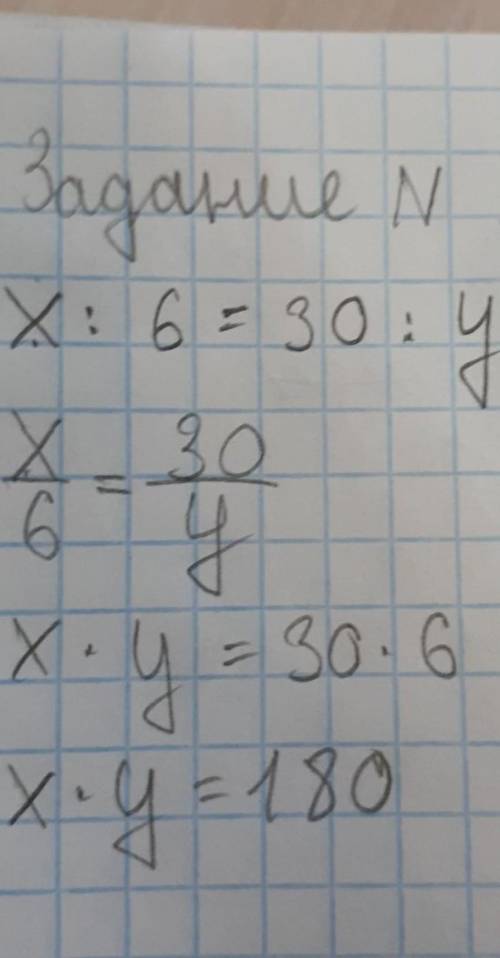 Задание N
x : 6 = 30 : y
x/6 = 30/y
x · y = 30 · 6
x · y = 180